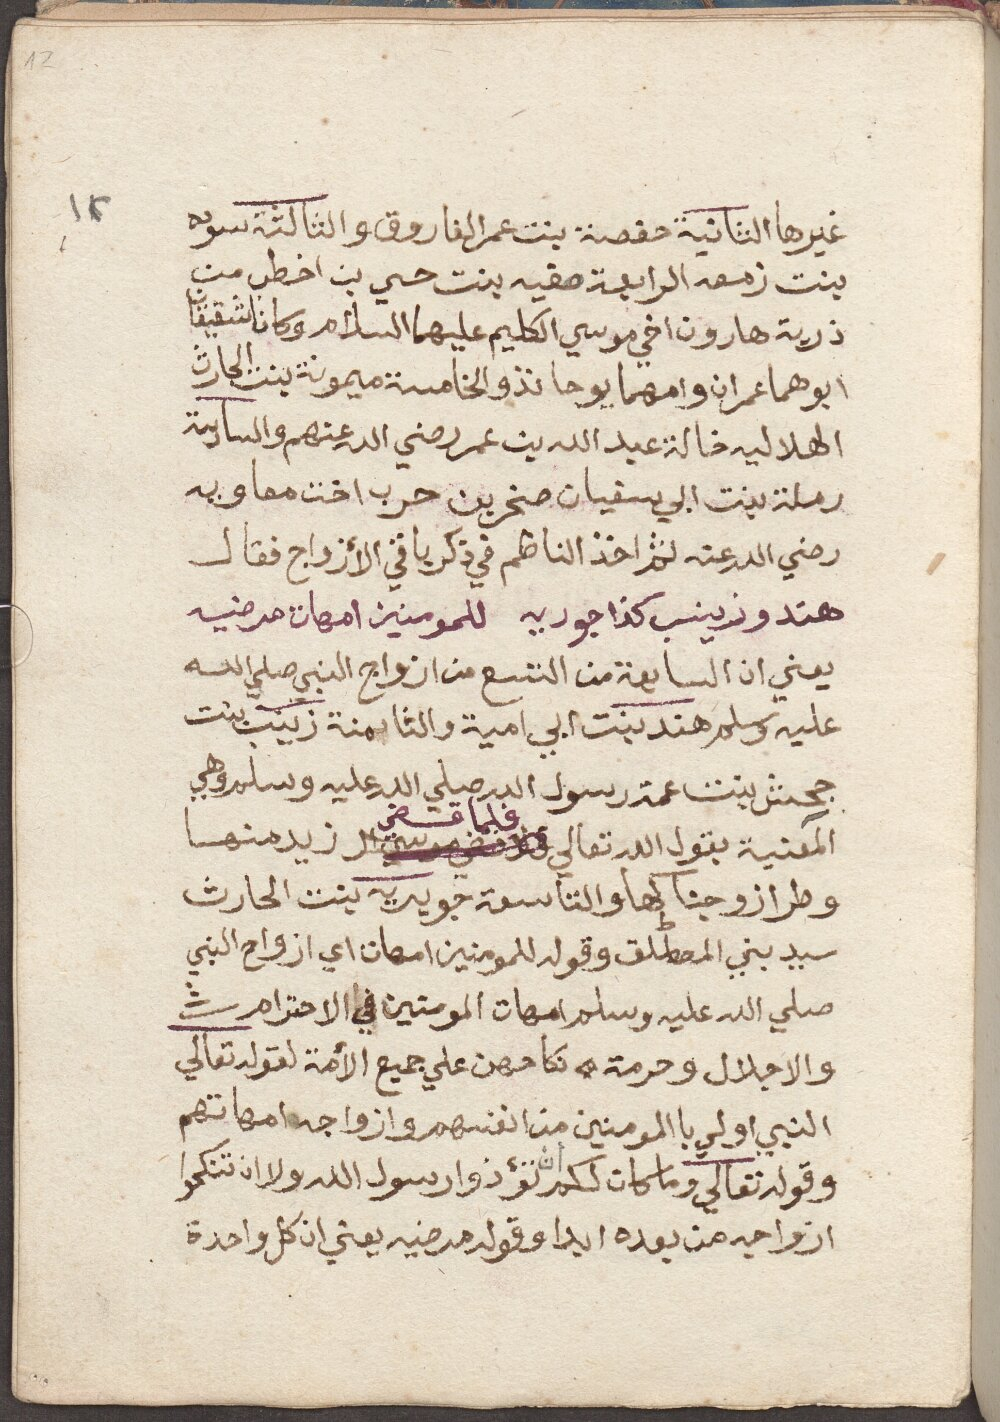 ١٢
غيرها الثانية حفصة بنت عمر الفاروق والثالثة سوده
بنت زمعه الرابعة صفيه بنت حيي بن اخطب من
ذرية هارون اخي موسي الكليم عليهما السلام وكانا شقيقان
ابوهما عمران وامهما يوحانذ والخامسة ميمونة بنت الحارث
الهلاليه خالة عبد الله بن عمر رضي الله عنهم والسادسة
رملة بنت ابي سفيان صخر بن حرب اخت معاويه
رضي الله عنه ثم اخذ الناظم في ذكر باقي الأزواج فقال
هند وزينب كذا جويريه للمومنين امهات مرضيه
يعني ان السابعة من التسع من ازواج النبي صلي الله
عليه وسلم هند بنت ابي امية والثامنة زينب بنت
جحش بنت عمة رسول الله صلي الله عليه وسلم وهي
المعنية بقول الله تعالي فلما قضي زيد منها
وطرا زوجناكها والتاسعة جويريه بنت الحارث
سيد بني المصطلق وقوله للمومنين امهات اي ازواج النبي
صلي الله عليه وسلم امهات المومنين في الاحترام
والاجلال وحرمة نكاحهن علي جميع الأمة لقوله تعالي
النبي اولي باالمومنين من انفسهم وازواجه امهاتهم
وقوله تعالي وما كان لكم ان تؤذوا رسول الله ولا ان تنكحوا
ازواجه من بعده ابدا وقوله مرضيه يعني ان كل واحدة